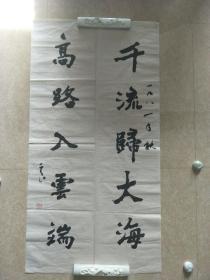 千流歸大海
一九八一年秋
高路入雲端